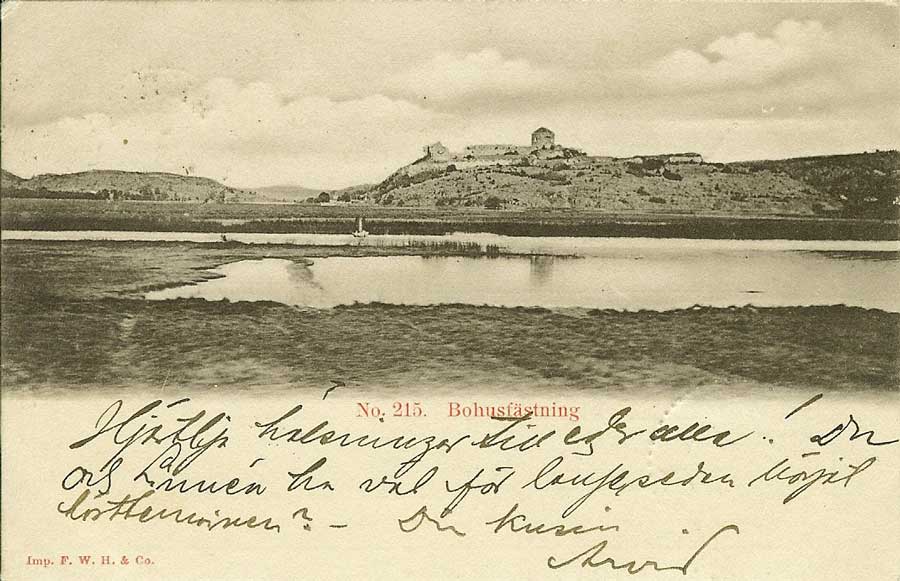 No. 215. Bohusfästning
Hjärtlja hälsningar till eder alla! Du
och Linnéa ha väl för länge sedan börjat
Din kusin
Arvid
Imp. F. W. H. & Co.